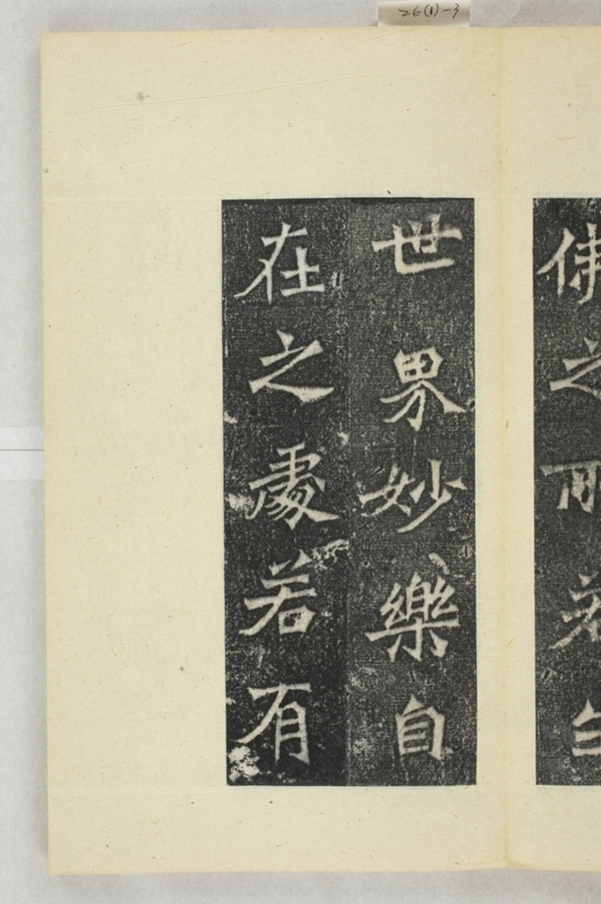 26(1)-3
佛之所若生
世界妙樂自
在之處若有